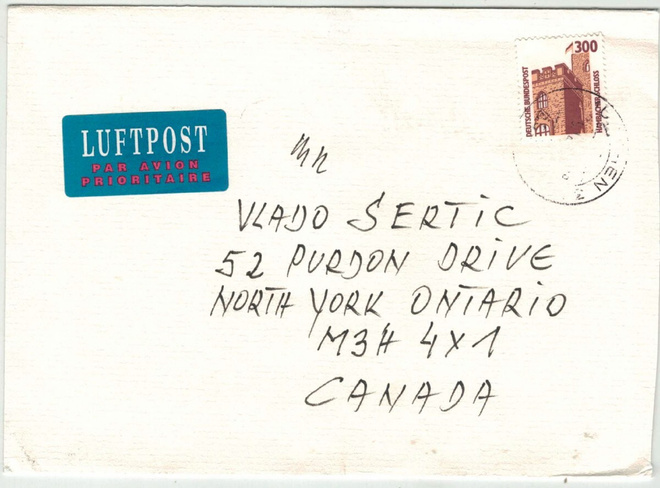 300
DEUTSCHE BUNDESPOST
HAMBACHER SCHLOSS
LUFTPOST
PAR AVION
PRIORITAIRE
VLADO SERTIC
52 PURDON DRIVE
NORTH YORK ONTARIO
M3H 4X1
CANADA